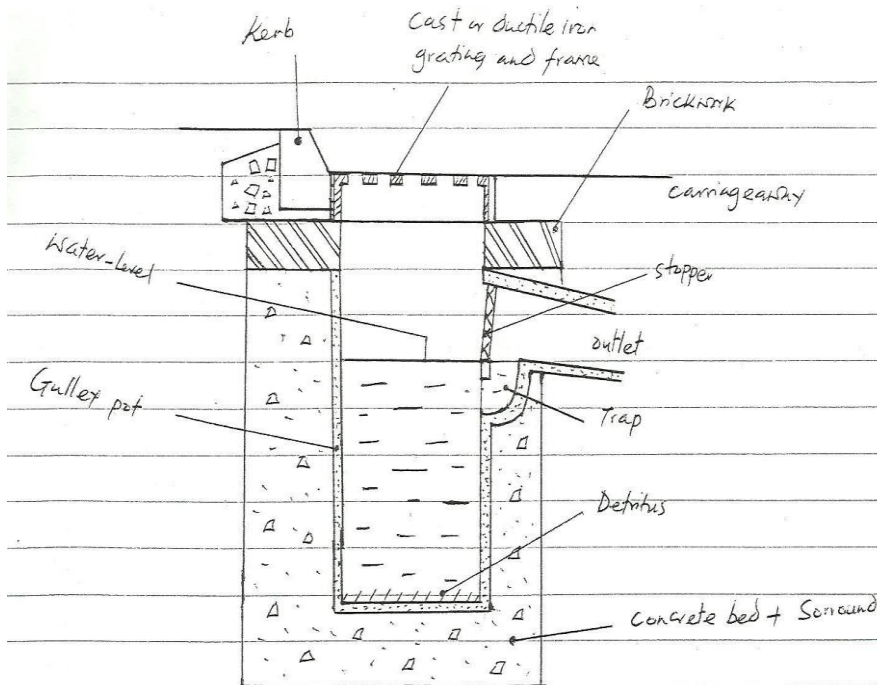 Kerb
Cast or ductile iron
grating and frame
Brickwork
Carriageaway
Water-level
stopper
outlet
Gulley pot
Trap
Detritus
Concrete bed + Sorround